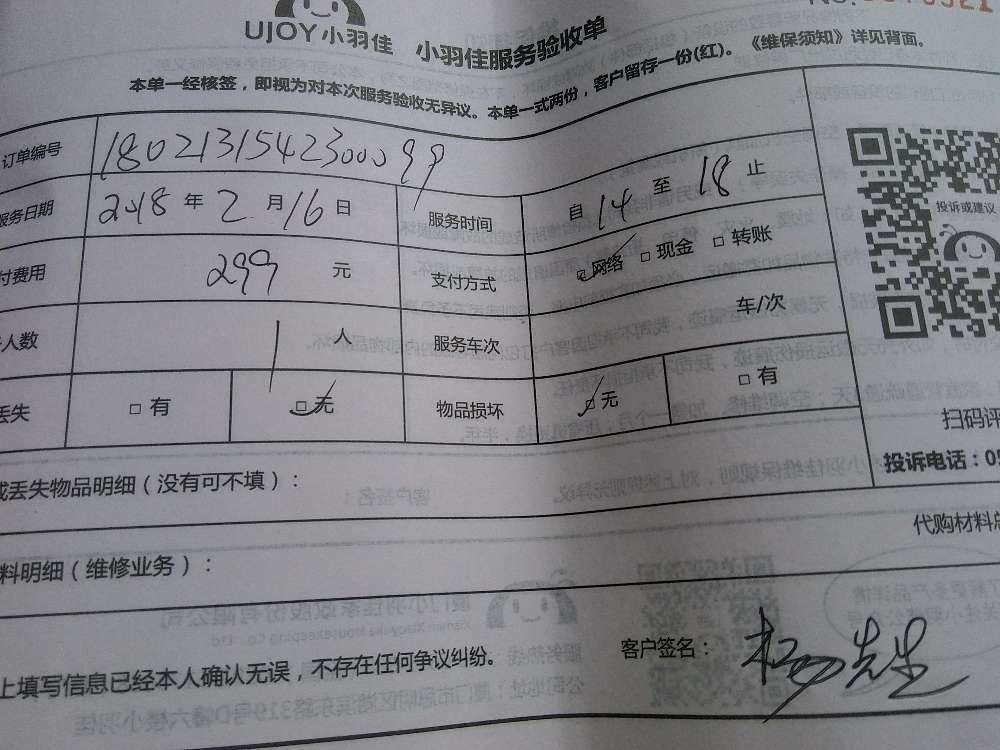 UJOY小羽佳 小羽佳服务验收单
本单一经核签，即视为对本次服务验收无异议。本单一式两份，客户留存一份(红)。《维保须知》详见背面。
订单编号 1802131542300099
服务日期 2018 年 2 月 16 日 服务时间 自 14 至 18 止
付费用 299 元 支付方式 ☑网络 □现金 □转账
人数 1 人 服务车次 车/次
丢失 □有 ☑无 物品损坏 ☑无 □有
投诉或建议
扫码评
投诉电话：05
或丢失物品明细（没有可不填）：
代购材料总
料明细（维修业务）：
上填写信息已经本人确认无误，不存在任何争议纠纷。
客户签名： 杨先生